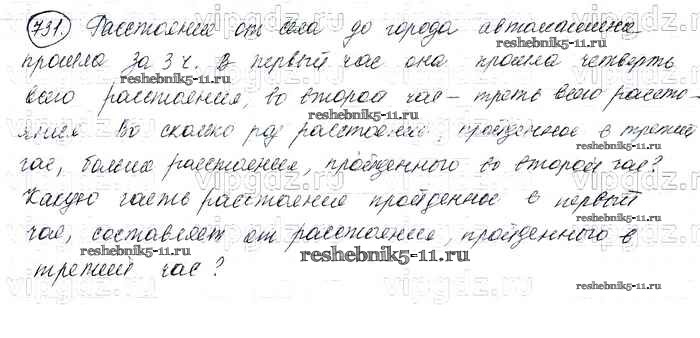 731. Расстояние от села до города автомашина
прошла за 3 ч. В первый час она прошла четверть
всего расстояния, во второй час - треть всего рассто-
яния. Во сколько раз расстояние, пройденное в третий
час, больше расстояния, пройденного во второй час?
Какую часть расстояние пройденное в первый
час, составляет от расстояния, пройденного в
третий час?
reshebnik5-11.ru
reshebnik5-11.ru
reshebnik5-11.ru
reshebnik5-11.ru
reshebnik5-11.ru
reshebnik5-11.ru
vipgdz.ru